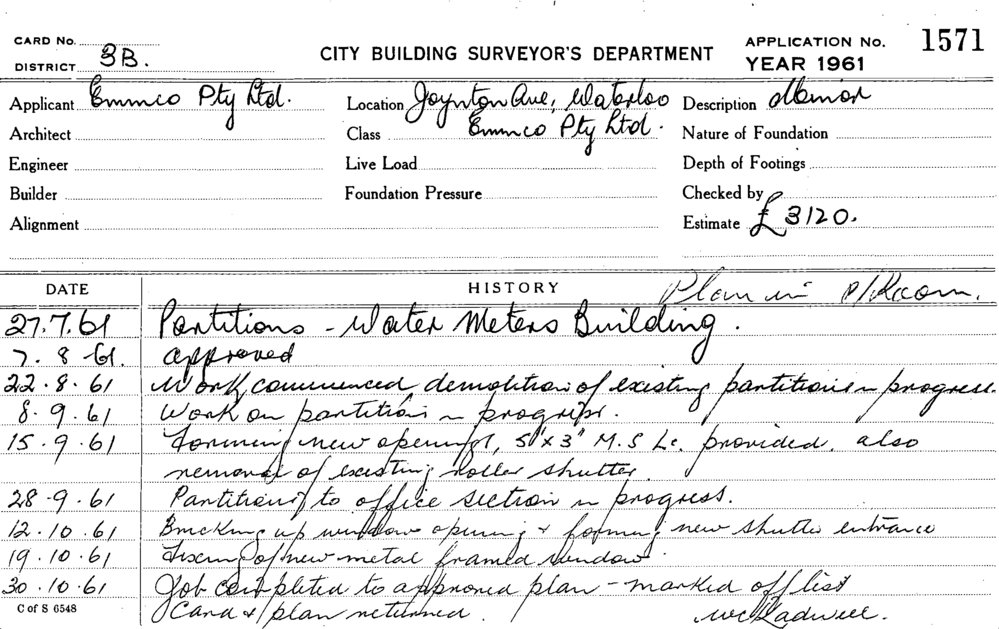 CARD No.
CITY BUILDING SURVEYOR'S DEPARTMENT
APPLICATION No. 1571
DISTRICT 3B.
YEAR 1961
Applicant Emmco Pty Ltd.
Location Joynton Ave, Waterloo
Description Minor
Architect
Class Emmco Pty Ltd.
Nature of Foundation
Engineer
Live Load
Depth of Footings
Builder
Foundation Pressure
Checked by
Alignment
Estimate £3120.
DATE
HISTORY
Plan in P/Room.
27.7.61 Partitions - Water Meters Building.
7.8.61. approved
22.8.61 Work commenced demolition of existing partitions in progress.
8.9.61 Work on partition in progress.
15.9.61 Forming new openings, 5"x3" M.S L. provided, also
removal of existing roller shutter
28.9.61 Partitions to office section in progress.
12.10.61 Bricking up window opening & forming new shutter entrance
19.10.61 Fixing of new metal framed window
30.10.61 Job completed to approved plan - marked off list
C of S 6548
Card & plan returned.